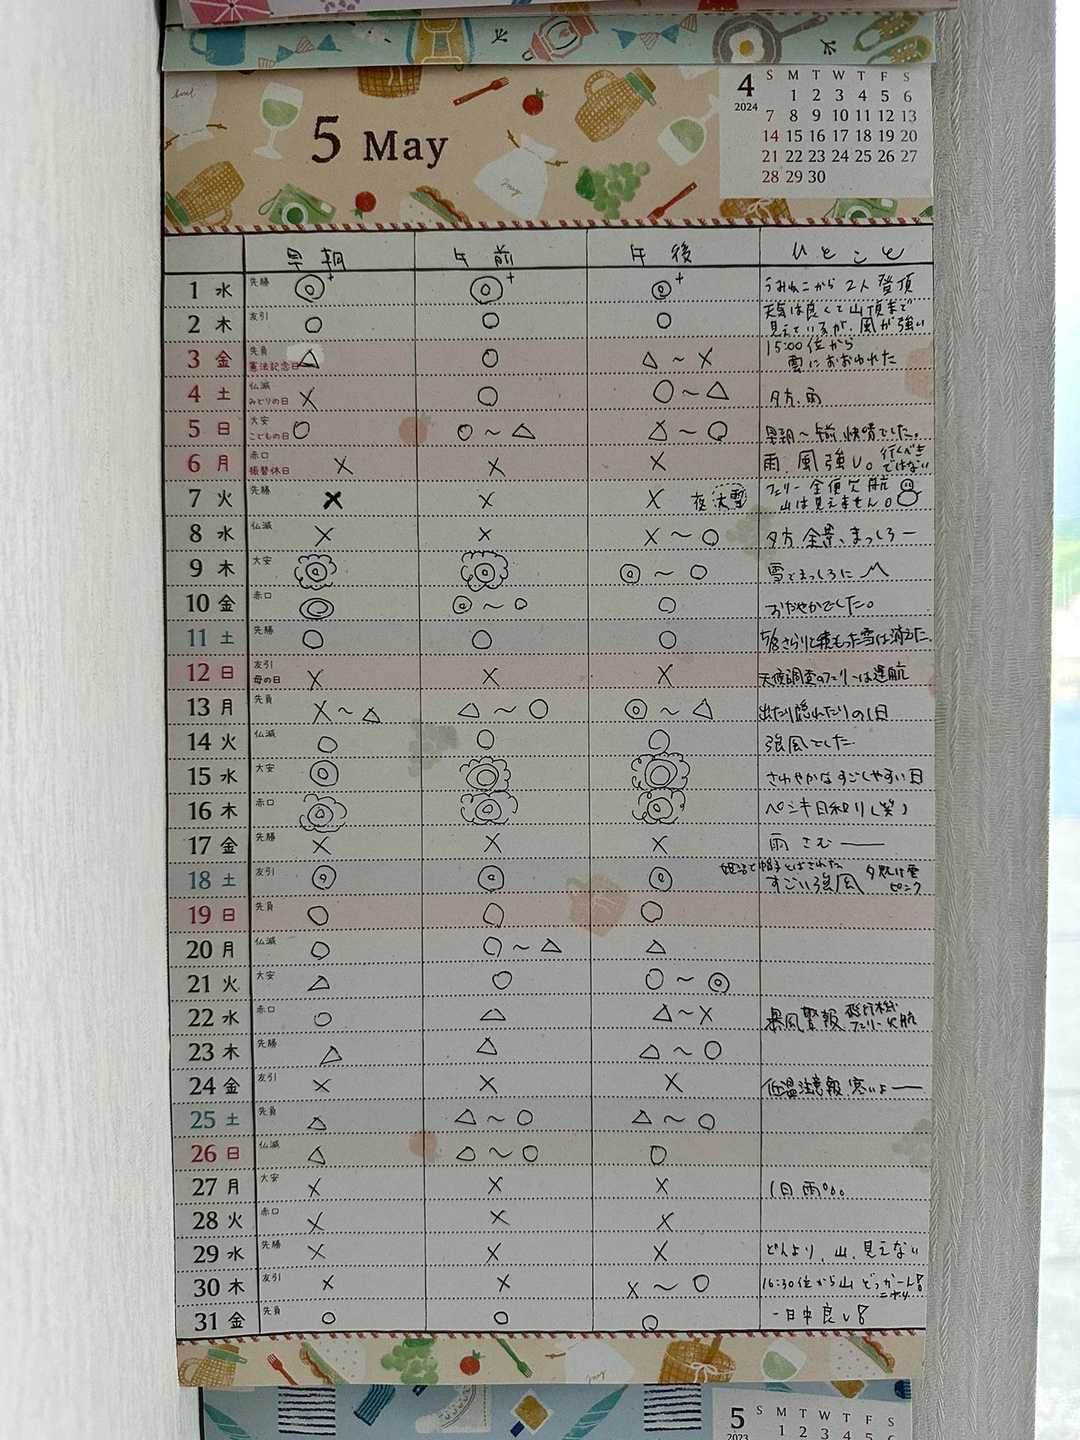 5 May
4
2024
S M T W T F S
1 2 3 4 5 6
7 8 9 10 11 12 13
14 15 16 17 18 19 20
21 22 23 24 25 26 27
28 29 30
早朝 午前 午後 ひとこと
1 水 先勝 ◎+ ◎+ ◎+ うみねこから 2人登頂
2 木 友引 ○ ○ ○ 天気は良くて山頂まで
見えているが、風が強い
3 金 先負 憲法記念日 △ ○ △～× 15:00位から
雲におおわれた
4 土 仏滅 みどりの日 × ○ ○～△ 夕方、雨
5 日 大安 こどもの日 ○ ○～△ ～○ 早朝～午前 快晴でした。
6 月 赤口 振替休日 × × × 雨、風強い。行くべき
ではない
7 火 先勝 × × × 夜 フェリー全便欠航
山は見えません。
8 水 仏滅 × × ×～○ 夕方 まっしろー
9 木 大安 ◎ ◎ ◎～○ 雪でまっしろに
10 金 赤口 ◎ ◎～○ ○ おだやかでした。
11 土 先勝 ○ ○ ○ 5/8さらりと積もった雪は消えた.
12 日 友引 母の日 × × × 天候調査のフェリーは運航
13 月 先負 ×～△ △～○ ◎～△ 出たり隠れたりの1日
14 火 仏滅 ○ ○ ○ 強風でした.
15 水 大安 ◎ ◎ ◎ さわやかなすごしやすい日
16 木 赤口 ◎ ◎ ◎ ペンキ日和り(笑)
17 金 先勝 × × × 雨 さむー
18 土 友引 ◎ ◎ ◎ 帽子とばされた
すごい強風 ピンク
19 日 先負 ○ ○ ○
20 月 仏滅 ○ ○～△ △
21 火 大安 △ ○ ○～◎
22 水 赤口 ○ △ △～× 暴風警報 飛行機
フェリー欠航
23 木 先勝 △ △ △～○
24 金 友引 × × × 低温注意報、寒いよー
25 土 先負 △ △～○ △～○
26 日 仏滅 △ △～○ ○
27 月 大安 × × × 1日雨
28 火 赤口 × × ×
29 水 先勝 × × × どんより、山、見えない
30 木 友引 × × ×～○ 16:30位から山 どっかーん!
31 金 先負 ○ ○ ○ 一日中良い!
5
2023
S M T W T F S
1 2 3 4 5